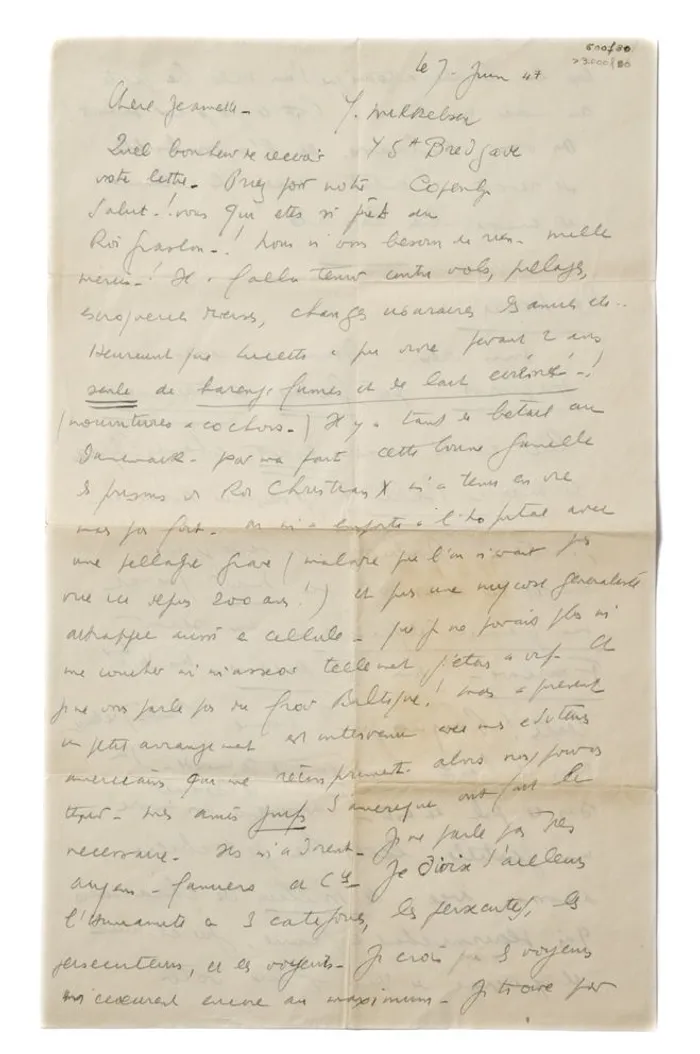 600/80
le 7. Juin 47.
Chere Jeannette - Y. Mikkelsen
Quel bonheur de recevoir 45A Bredgave
votre lettre - Priez pour notre Copenhg
Salut - ! vous qui etes si près du
Roi Graslon - ! Nous n'avons besoin de rien - mille
mercis - ! Il a fallu tenir contre vols, pillages,
escroqueries diverses, changes usuraires d'amis etc..
Heureusement que Lucette a pu vivre pendant 2 ans
seule de harengs fumés et de lait écrémé - !
(nourritures a cochons - ) Il y a tant de bétail au
Danemark - par ma part cette bonne gamelle
des prisons du Roi Christian X m'a tenu en vie
mais pas fort - on m'a emporté a l'hopital avec
une pellagre grave (maladie que l'on n'avait pas
vue ici depuis 200 ans !) et puis une mycose generalisée
attrapée aussi en cellule - que je ne pouvais plus ni
me coucher ni m'asseoir tellement j'etais a vif - Et
je ne vous parle pas du froid Baltique ! mais a present
un petit arrangement est intervenu avec mes editeurs
americains qui me réimpriment - alors nous pouvons
tenir - mes amis juifs d'amerique ont fait le
necessaire - Ils m'adorent - Je ne parle pas des
aryens - Je divise d'ailleurs
l'Humanité en 3 categories, les persecutés, les
persecuteurs, et les voyeurs - Je crois que les voyeurs
m'ecœurent encore au maximum - Je trouve par